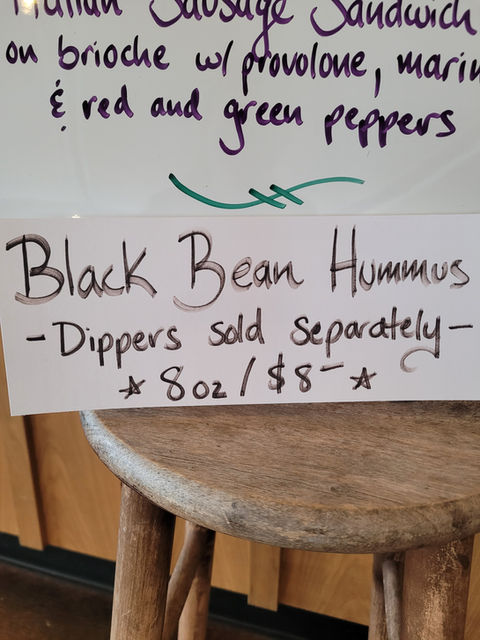 Italian Sausage Sandwich
on brioche w/ provolone,
& red and green peppers
Black Bean Hummus
- Dippers sold separately -
☆ 8oz / $8- ☆